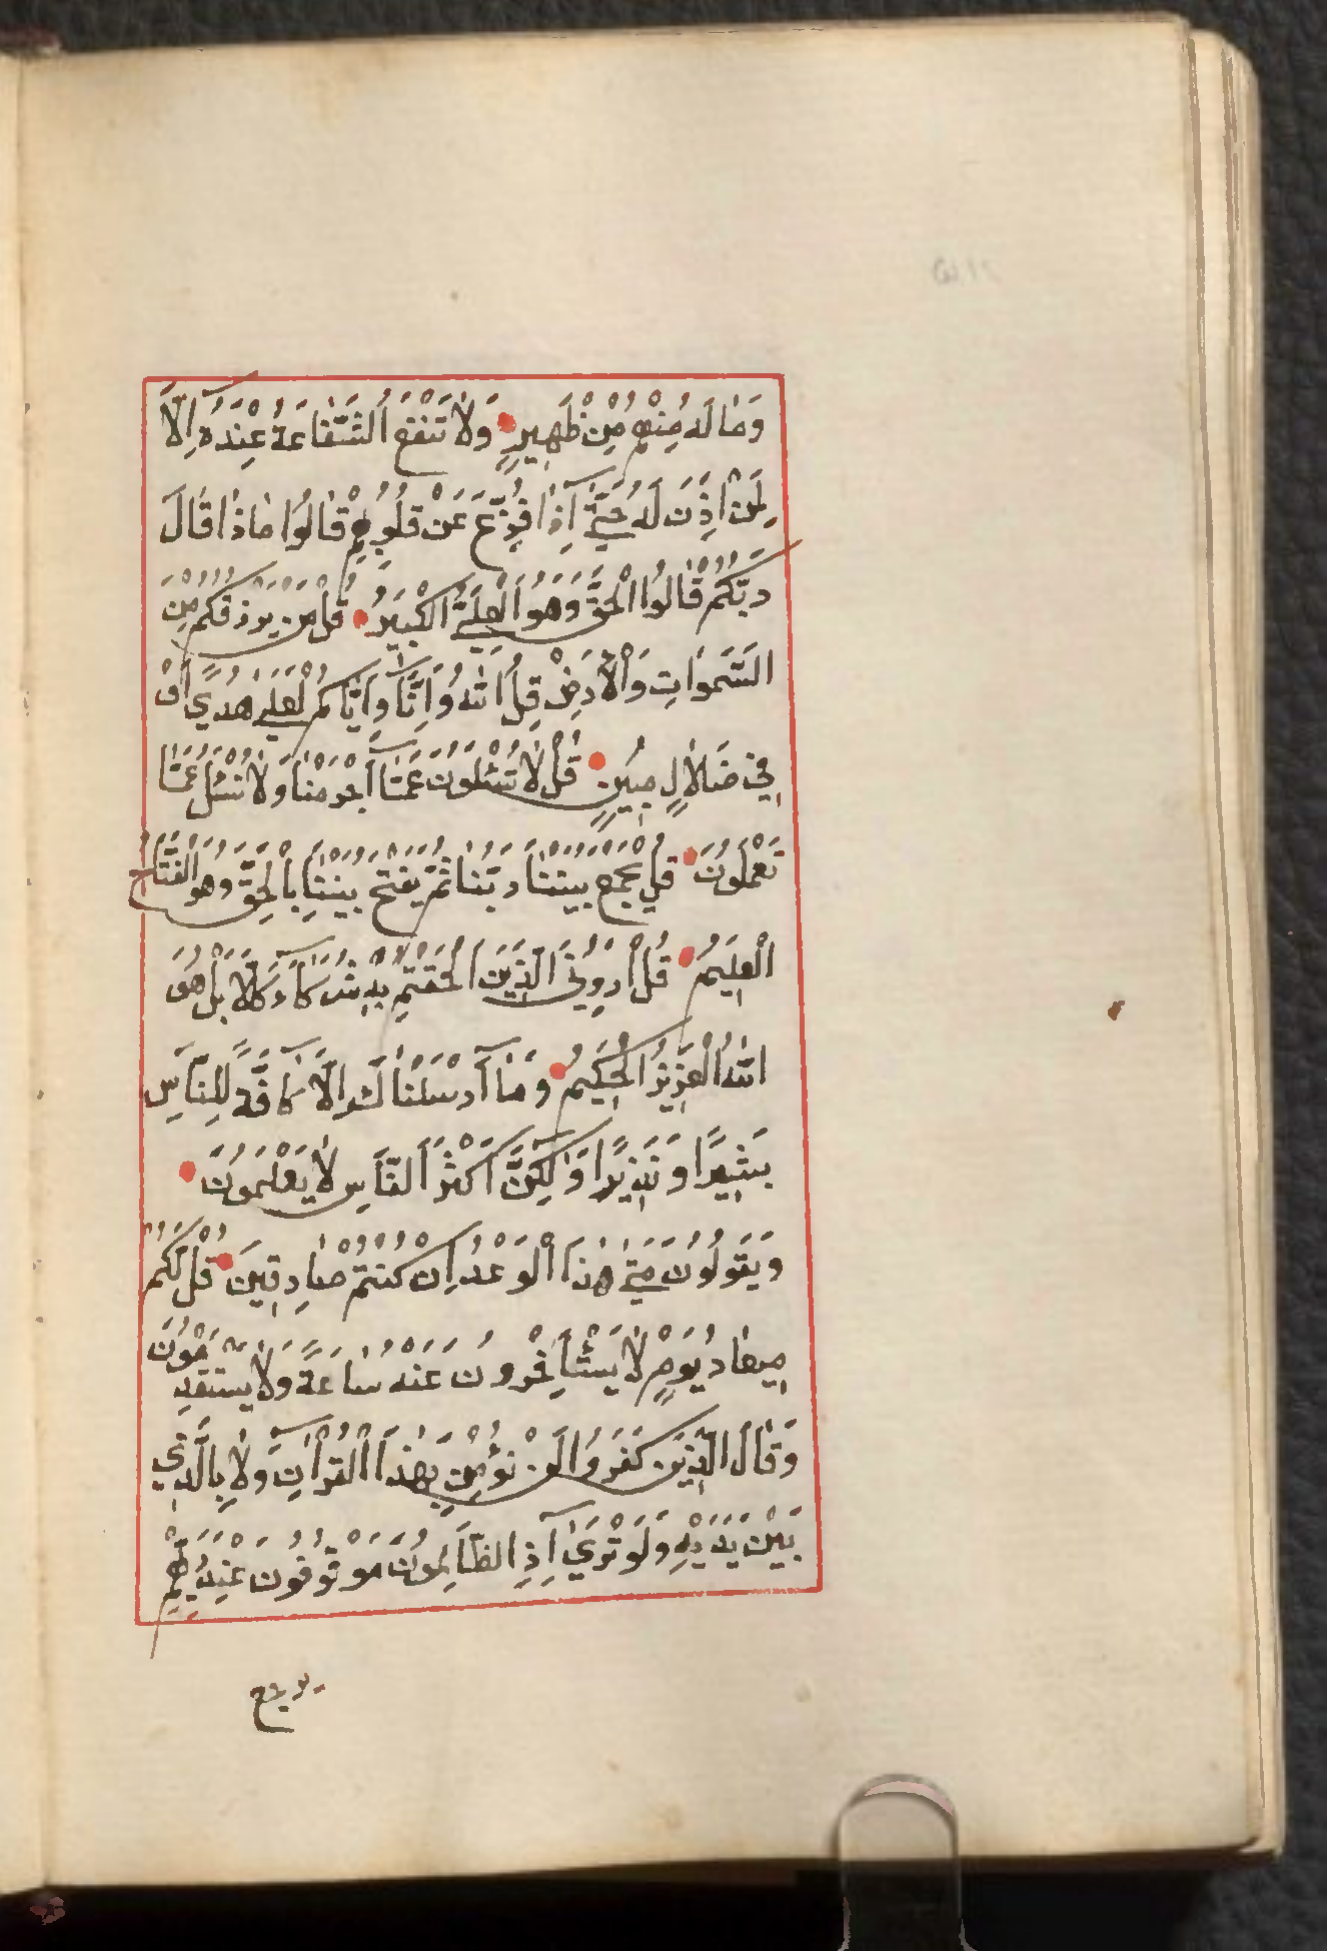 وَمَا لَهُ مِنْهُمْ مِنْ ظَهِيرٍ وَلَا تَنْفَعُ الشَّفَاعَةُ عِنْدَهُ اِلَّا
لِمَنْ اَذِنَ لَهُ حَتَّى اِذَا فُزِّعَ عَنْ قُلُوبِهِمْ قَالُوا مَاذَا قَالَ
رَبُّكُمْ قَالُوا الْحَقَّ وَهُوَ الْعَلِيُّ الْكَبِيرُ قُلْ مَنْ يَرْزُقُكُمْ مِنَ
السَّمَوَاتِ وَالْاَرْضِ قُلِ اللَّهُ وَاِنَّا وَاِيَّاكُمْ لَعَلَى هُدًى اَوْ
فِي ضَلَالٍ مُبِينٍ قُلْ لَا تُسْئَلُونَ عَمَّا اَجْرَمْنَا وَلَا نُسْئَلُ عَمَّا
تَعْمَلُونَ قُلْ يَجْمَعُ بَيْنَنَا رَبُّنَا ثُمَّ يَفْتَحُ بَيْنَنَا بِالْحَقِّ وَهُوَ الْفَتَّاحُ
الْعَلِيمُ قُلْ اَرُونِيَ الَّذِينَ اَلْحَقْتُمْ بِهِ شُرَكَاءَ كَلَّا بَلْ هُوَ
اللَّهُ الْعَزِيزُ الْحَكِيمُ وَمَا اَرْسَلْنَاكَ اِلَّا كَافَّةً لِلنَّاسِ
بَشِيرًا وَنَذِيرًا وَلَكِنَّ اَكْثَرَ النَّاسِ لَا يَعْلَمُونَ
وَيَقُولُونَ مَتَى هَذَا الْوَعْدُ اِنْ كُنْتُمْ صَادِقِينَ قُلْ لَكُمْ
مِيعَادُ يَوْمٍ لَا يَسْتَأْخِرُونَ عَنْهُ سَاعَةً وَلَا يَسْتَقْدِمُونَ
وَقَالَ الَّذِينَ كَفَرُوا لَنْ نُؤْمِنَ بِهَذَا الْقُرْاَنِ وَلَا بِالَّذِي
بَيْنَ يَدَيْهِ وَلَوْ تَرَى اِذِ الظَّالِمُونَ مَوْقُوفُونَ عِنْدَ رَبِّهِمْ
يرجع